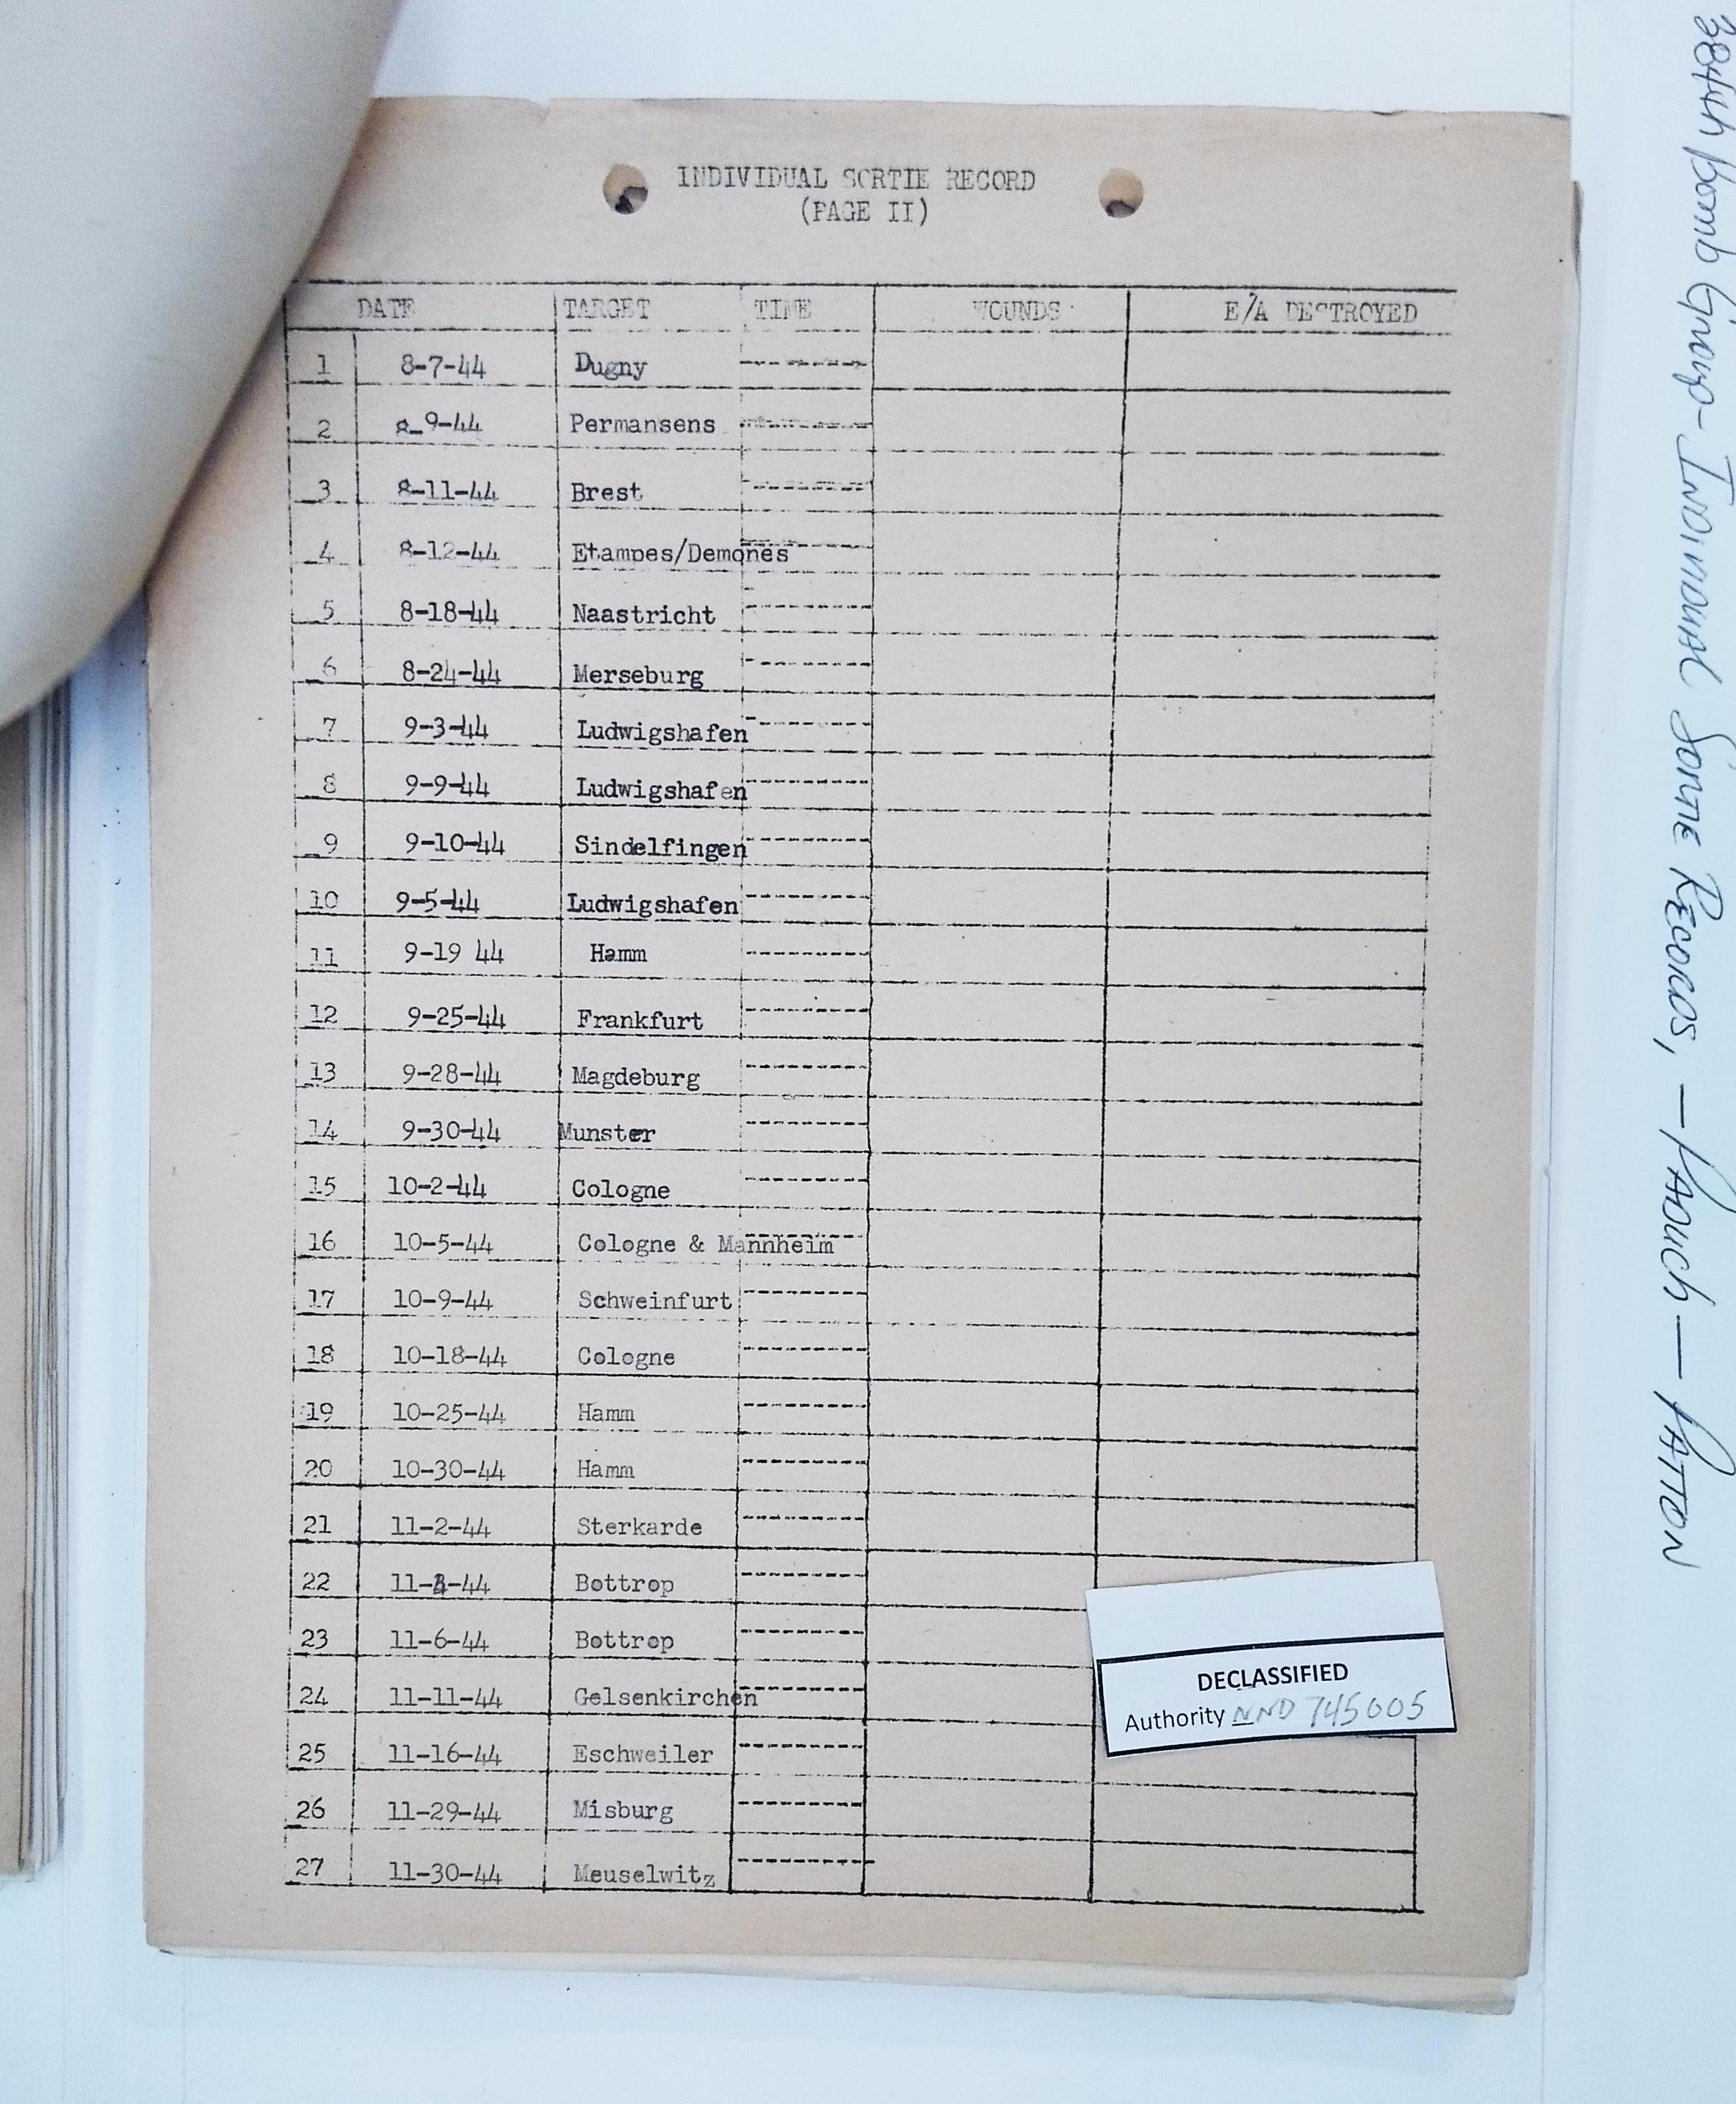 INDIVIDUAL SORTIE RECORD
(PAGE II)
DATE TARGET TIME WOUNDS E/A DESTROYED
1 8-7-44 Dugny ---------
2 8-9-44 Permansens ---------
3 8-11-44 Brest ---------
4 8-12-44 Etampes/Demones ---------
5 8-18-44 Naastricht ---------
6 8-24-44 Merseburg ---------
7 9-3-44 Ludwigshafen ---------
8 9-9-44 Ludwigshafen ---------
9 9-10-44 Sindelfingen ---------
10 9-5-44 Ludwigshafen ---------
11 9-19 44 Hamm ---------
12 9-25-44 Frankfurt ---------
13 9-28-44 Magdeburg ---------
14 9-30-44 Munster ---------
15 10-2-44 Cologne ---------
16 10-5-44 Cologne & Mannheim ---------
17 10-9-44 Schweinfurt ---------
18 10-18-44 Cologne ---------
19 10-25-44 Hamm ---------
20 10-30-44 Hamm ---------
21 11-2-44 Sterkarde ---------
22 Bottrop ---------
23 11-6-44 Bottrop ---------
24 11-11-44 Gelsenkirchen ---------
25 11-16-44 Eschweiler ---------
26 11-29-44 Misburg ---------
27 11-30-44 Meuselwitz ---------
DECLASSIFIED
Authority NND 745005
384th Bomb Group - Individual Sortie Records, - Paduch - Patton